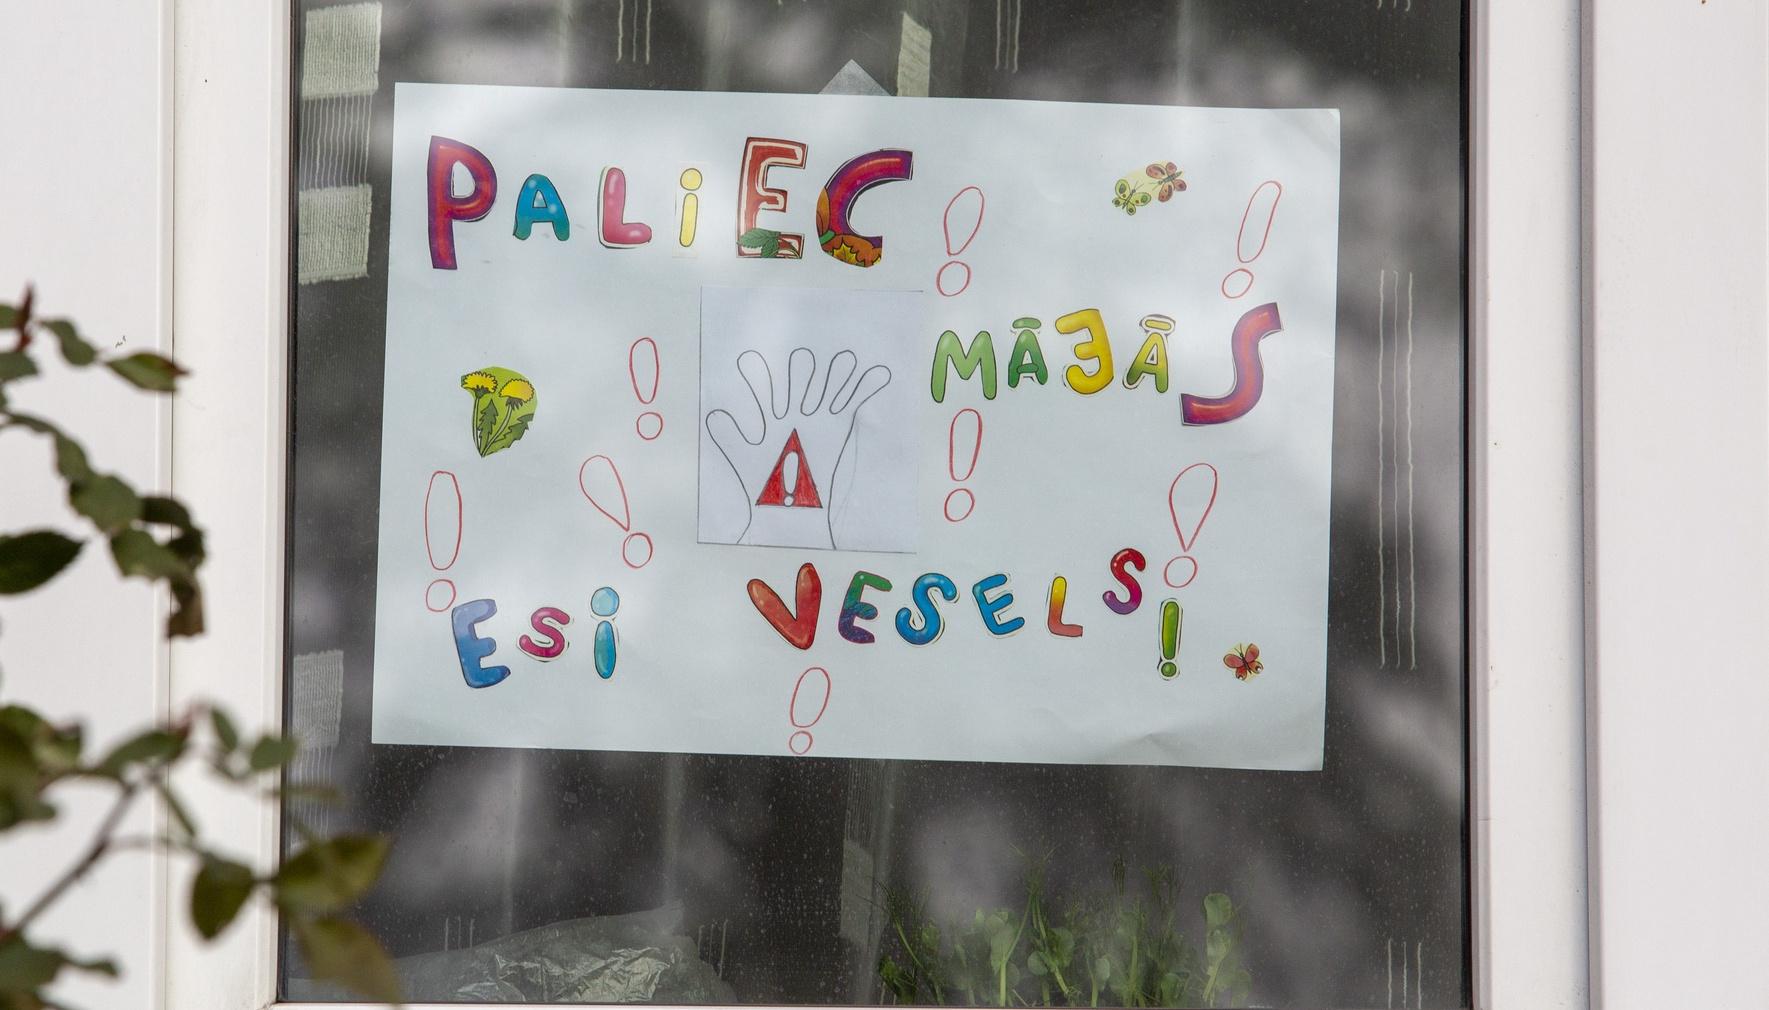 PALiEC !
!
MĀJĀS
! !
! ! !
ESi VESELS!
!